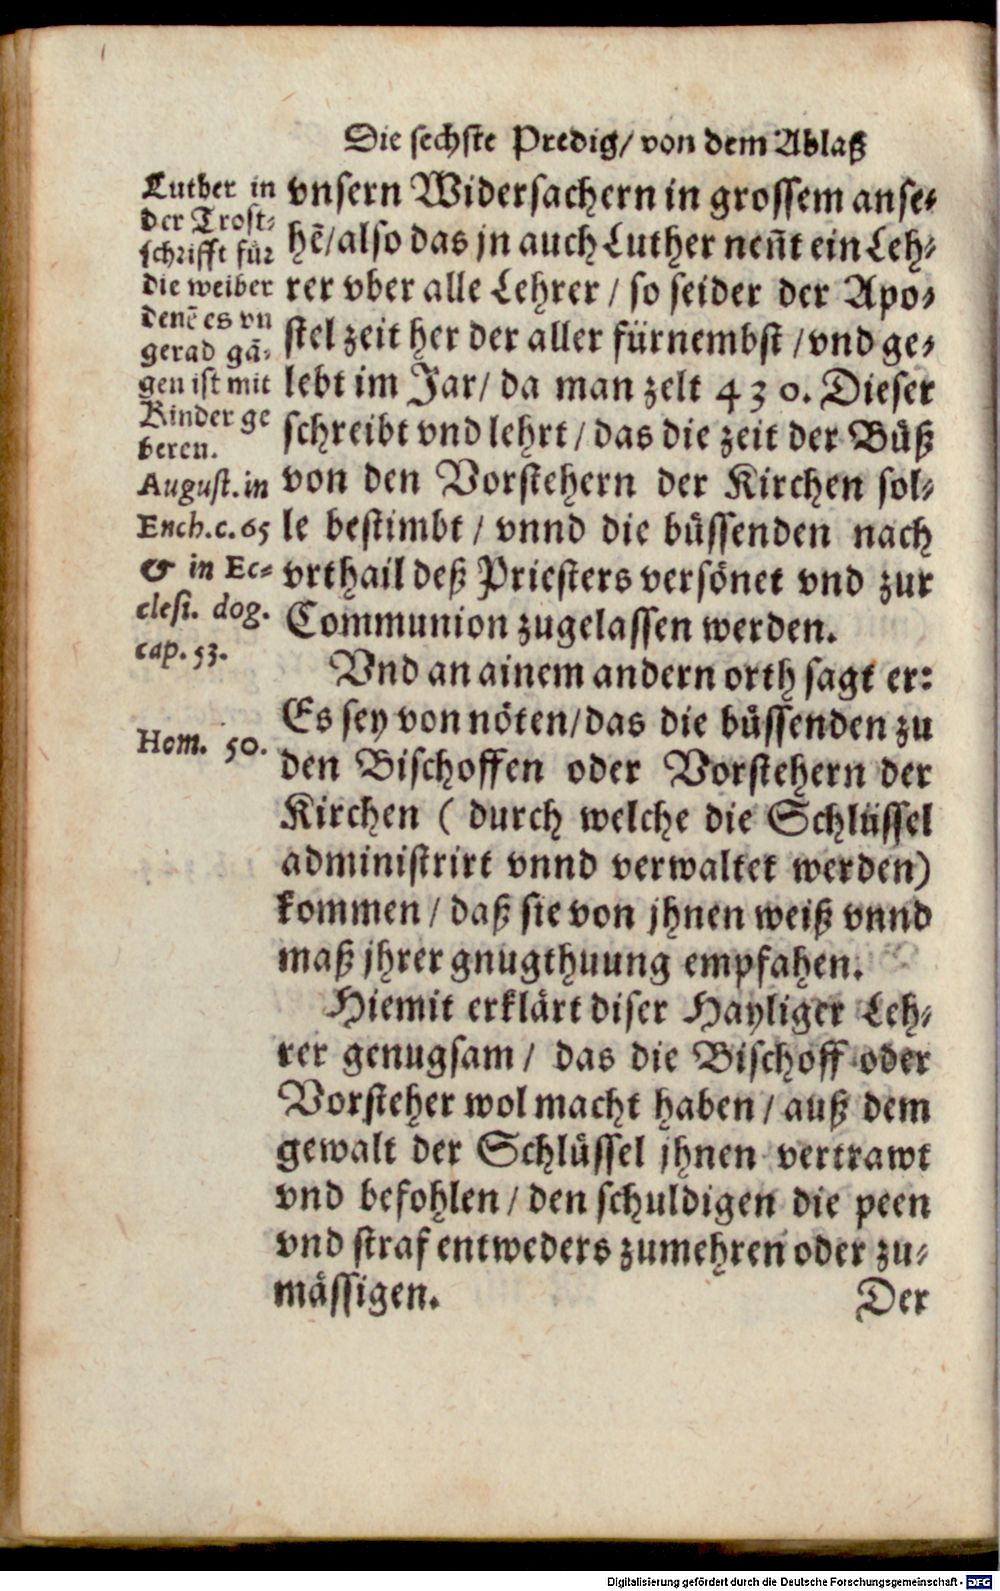 Die sechste Predig/ von dem Ablaß
Luther in
der Trost-
schrifft für
die weiber
denē es vn
gerad gā-
gen ist mit
Kinder ge
beren.
August. in
Ench. c. 65
& in Ec-
clesi. dog.
cap. 53.
Hom. 50.
vnsern Widersachern in grossem anse-
hē/also das jn auch Luther neñt ein Leh-
rer vber alle Lehrer / so seider der Apo-
stel zeit her der aller fürnembst / vnd ge-
lebt im Jar/ da man zelt 430. Dieser
schreibt vnd lehrt / das die zeit der Büß
von den Vorstehern der Kirchen sol-
le bestimbt / vnnd die büssenden nach
vrthail deß Priesters versönet vnd zur
Communion zugelassen werden.
Vnd an ainem andern orth sagt er:
Es sey von nöten/das die büssenden zu
den Bischoffen oder Vorstehern der
Kirchen ( durch welche die Schlüssel
administrirt vnnd verwaltet werden)
kommen / daß sie von jhnen weiß vnnd
maß jhrer gnugthuung empfahen.
Hiemit erklärt diser Hayliger Leh-
rer genugsam / das die Bischoff oder
Vorsteher wol macht haben / auß dem
gewalt der Schlüssel jhnen vertrawt
vnd befohlen / den schuldigen die peen
vnd straf entweders zumehren oder zu-
mässigen.
Der
Digitalisierung gefördert durch die Deutsche Forschungsgemeinschaft - DFG